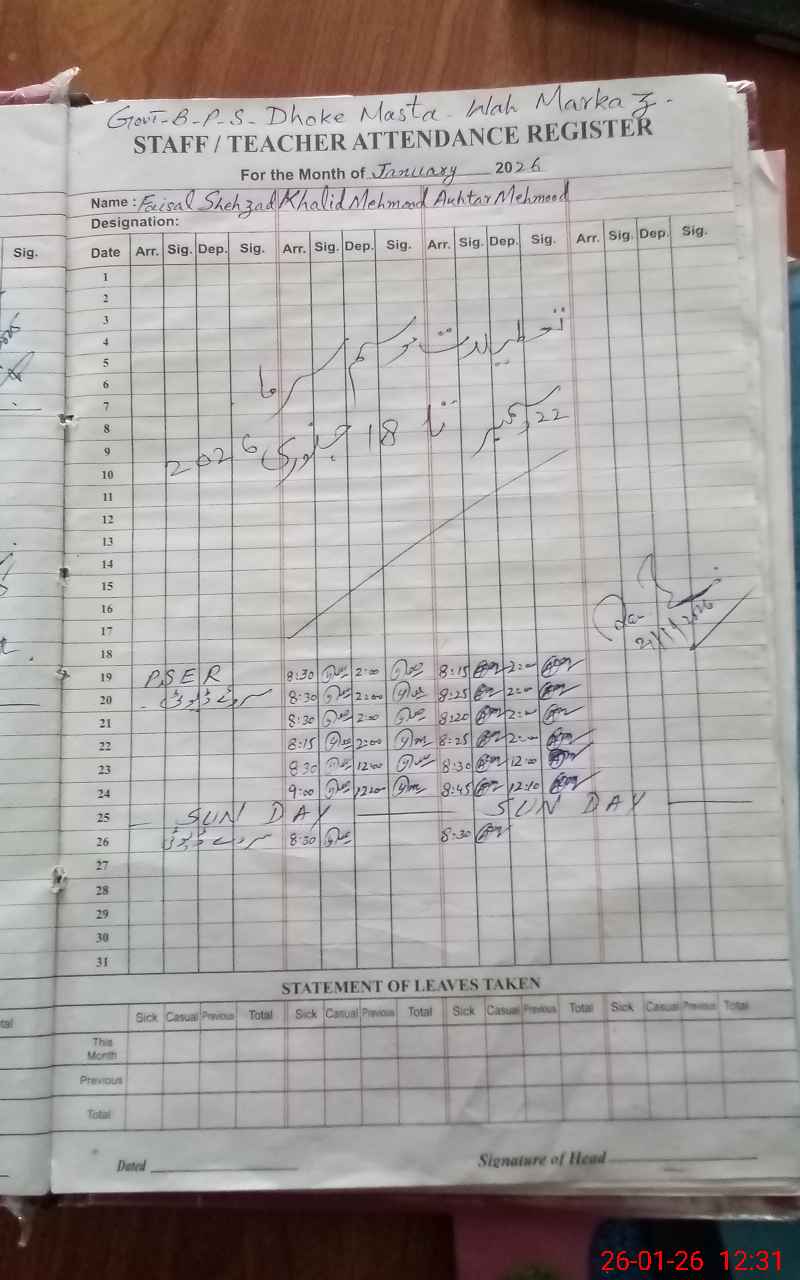 Govt-B-P-S- Dhoke Masta- Wah Markaz-
STAFF / TEACHER ATTENDANCE REGISTER
For the Month of January 2026
Name : Faisal Shehzad Khalid Mehmood Auhtar Mehmood
Designation:
Sig.
Date Arr. Sig. Dep. Sig. Arr. Sig. Dep. Sig. Arr. Sig. Dep. Sig. Arr. Sig. Dep. Sig.
1
2
3
4
تعطیلات موسم سرما
5
6
7
8
22 دسمبر تا 18 جنوری 2026
9
10
11
12
13
14
15
16
17
21/1/2026
18
19 P.S E R 8:30 2:00 8:15 2:00
20 سروے ڈیوٹی 8:30 2:00 8:25 2:00
21 8:30 2:00 8:20 2:00
22 8:15 2:00 8:25 2:00
23 8:30 12:00 8:30 12:00
24 9:00 12:00 8:45 12:10
25 SUN DAY SUN DAY
26 سروے ڈیوٹی 8:30 8:30
27
28
29
30
31
STATEMENT OF LEAVES TAKEN
Sick Casual Previous Total Sick Casual Previous Total Sick Casual Previous Total Sick Casual Previous Total
This Month
Previous
Total
Dated
Signature of Head
26-01-26 12:31